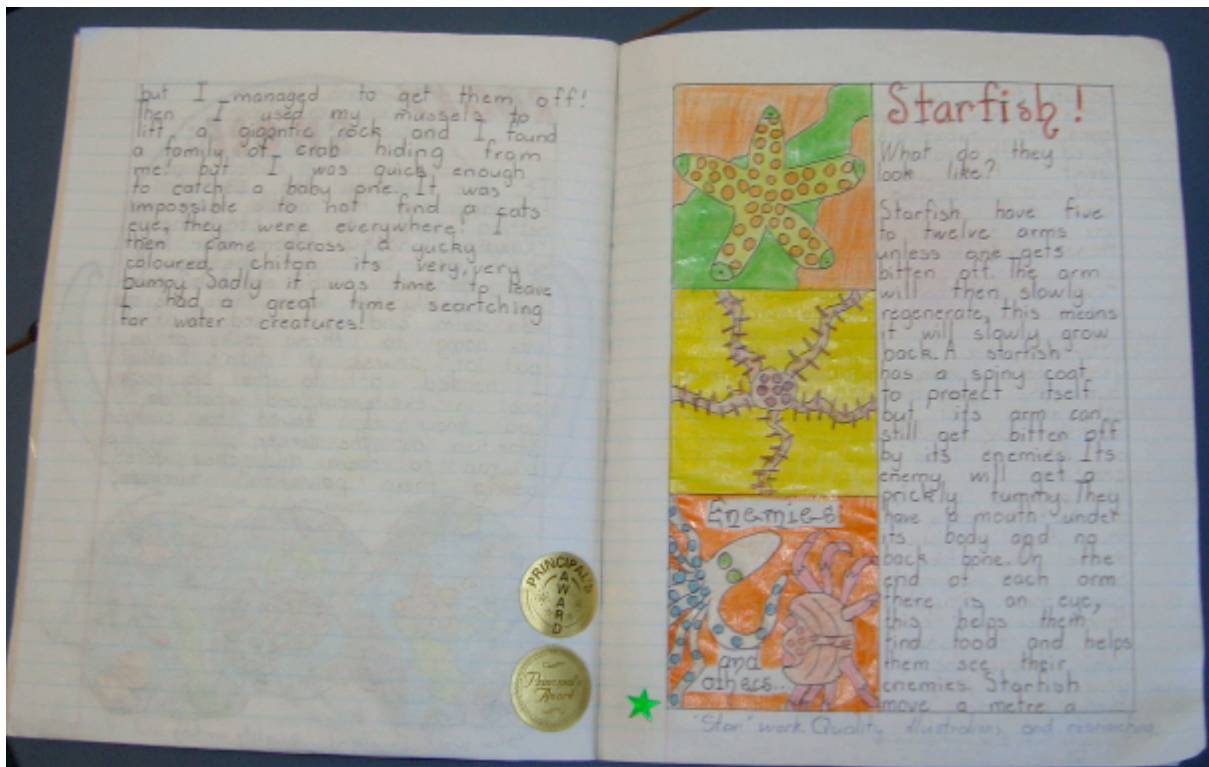 but I managed to get them off!
Then I used my mussels to
lift a gigantic rock and I found
a family of crab hiding from
me! but I was quick enough
to catch a baby one. It was
impossible to not find a cats
eye, they were everywhere! I
then came across a yucky
coloured chiton its very, very
bumpy. Sadly it was time to leave
I had a great time seartching
for water creatures!
PRINCIPAL'S
AWARD
Principal's
Award
Starfish!
What do they
look like?
Starfish have five
to twelve arms
unless one gets
bitten off. The arm
will then slowly
regenerate, this means
it will slowly grow
back. A starfish
has a spiny coat
to protect itself
but its arm can
still get bitten off
by its enemies. Its
enemy will get a
prickly tummy. They
have a mouth under
its body and no
back bone. On the
end of each arm
there is an eye,
this helps them
find food and helps
them see their
enemies. Starfish
move a metre a
Enemies
and
others...
"Star" work. Quality illustrations and researching